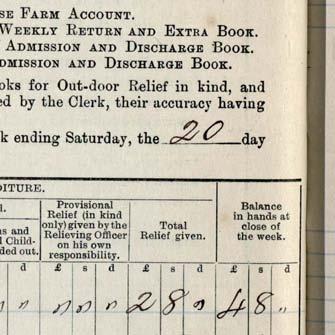 SE FARM ACCOUNT.
WEEKLY RETURN AND EXTRA BOOK.
ADMISSION AND DISCHARGE BOOK.
DMISSION AND DISCHARGE BOOK.
oks for Out-door Relief in kind, and
ed by the Clerk, their accuracy having
k ending Saturday, the 20 day
DITURE.
Provisional
Relief (in kind
only) given by the
Relieving Officer
on his own
responsibility.
Total
Relief given.
Balance
in hands at
close of
the week.
l.
ns and
l Child-
ded out.
s d £ s d £ s d £ s d
" " " " " 2 8 " 4 8 "